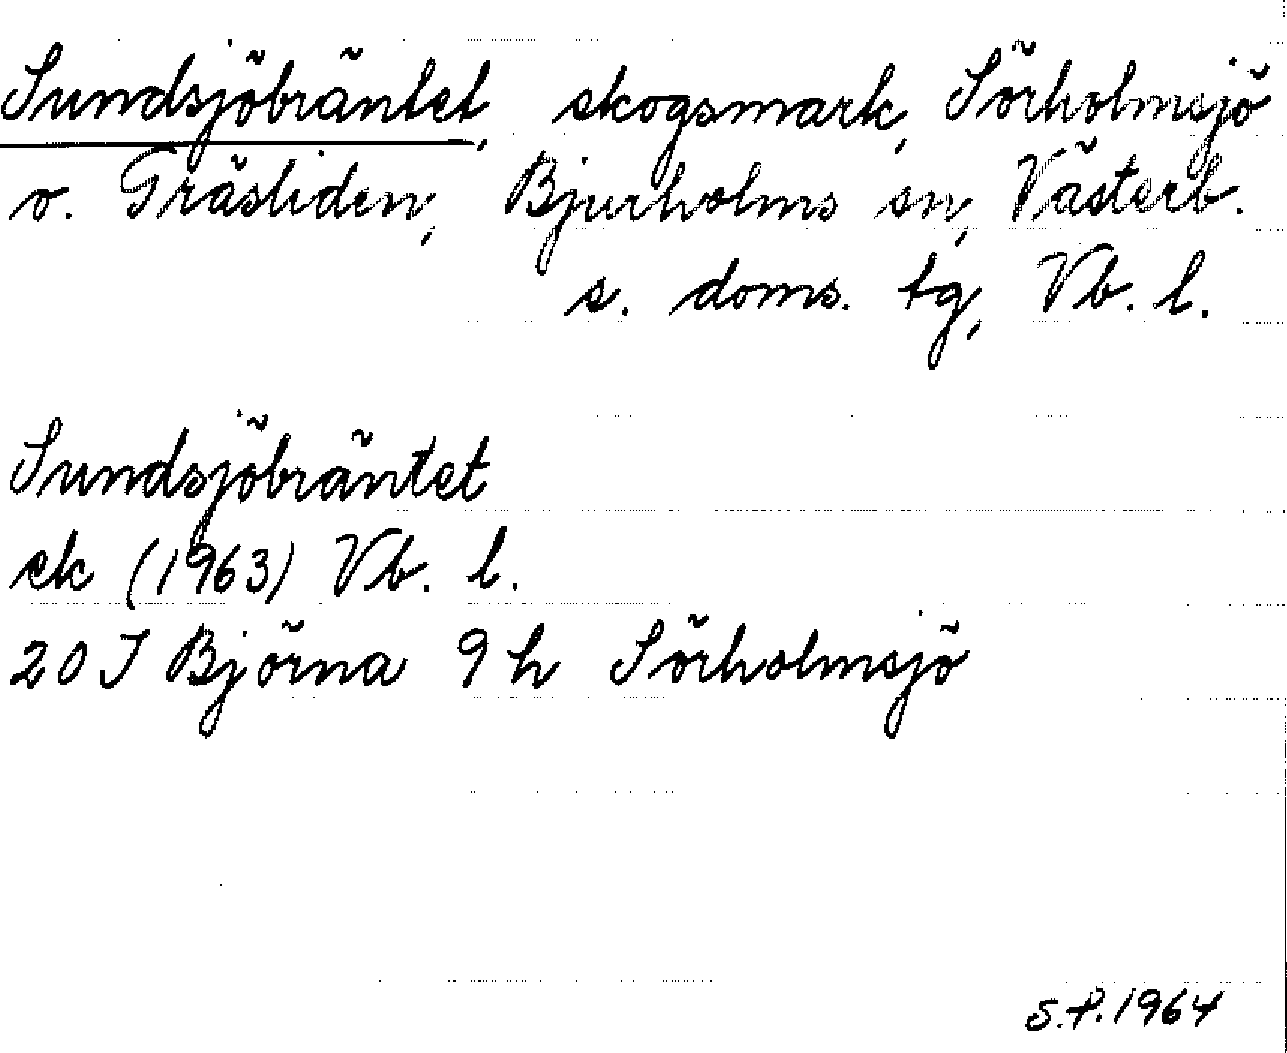 Sundsjöbräntet, skogsmark, Sörholmsjö
o. Gräsliden, Bjurholms sn, Västerb.
s. doms. tg, Vb. l.
Sundsjöbräntet
sk (1963) Vb. l.
20 J Björna 9 h Sörholmsjö
S.P. 1964